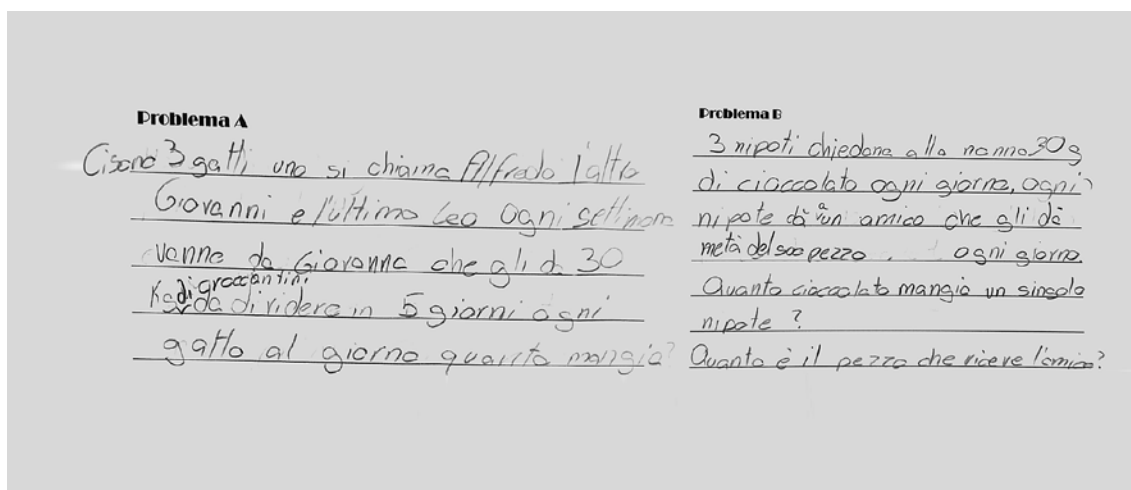 Problema A
Ci sono 3 gatti uno si chiama Alfredo l'altro
Giovanni e l'ultimo Leo Ogni settimana
vanno da Giovanna che gli da 30
Kg di croccantini da dividere in 5 giorni ogni
gatto al giorno quanto mangia?
Problema B
3 nipoti chiedono alla nonna 30g
di cioccolato ogni giorno, ogni
nipote dà a un amico che gli dà
metà del suo pezzo. ogni giorno.
Quanto cioccolato mangia un singolo
nipote?
Quanto è il pezzo che riceve l'amico?